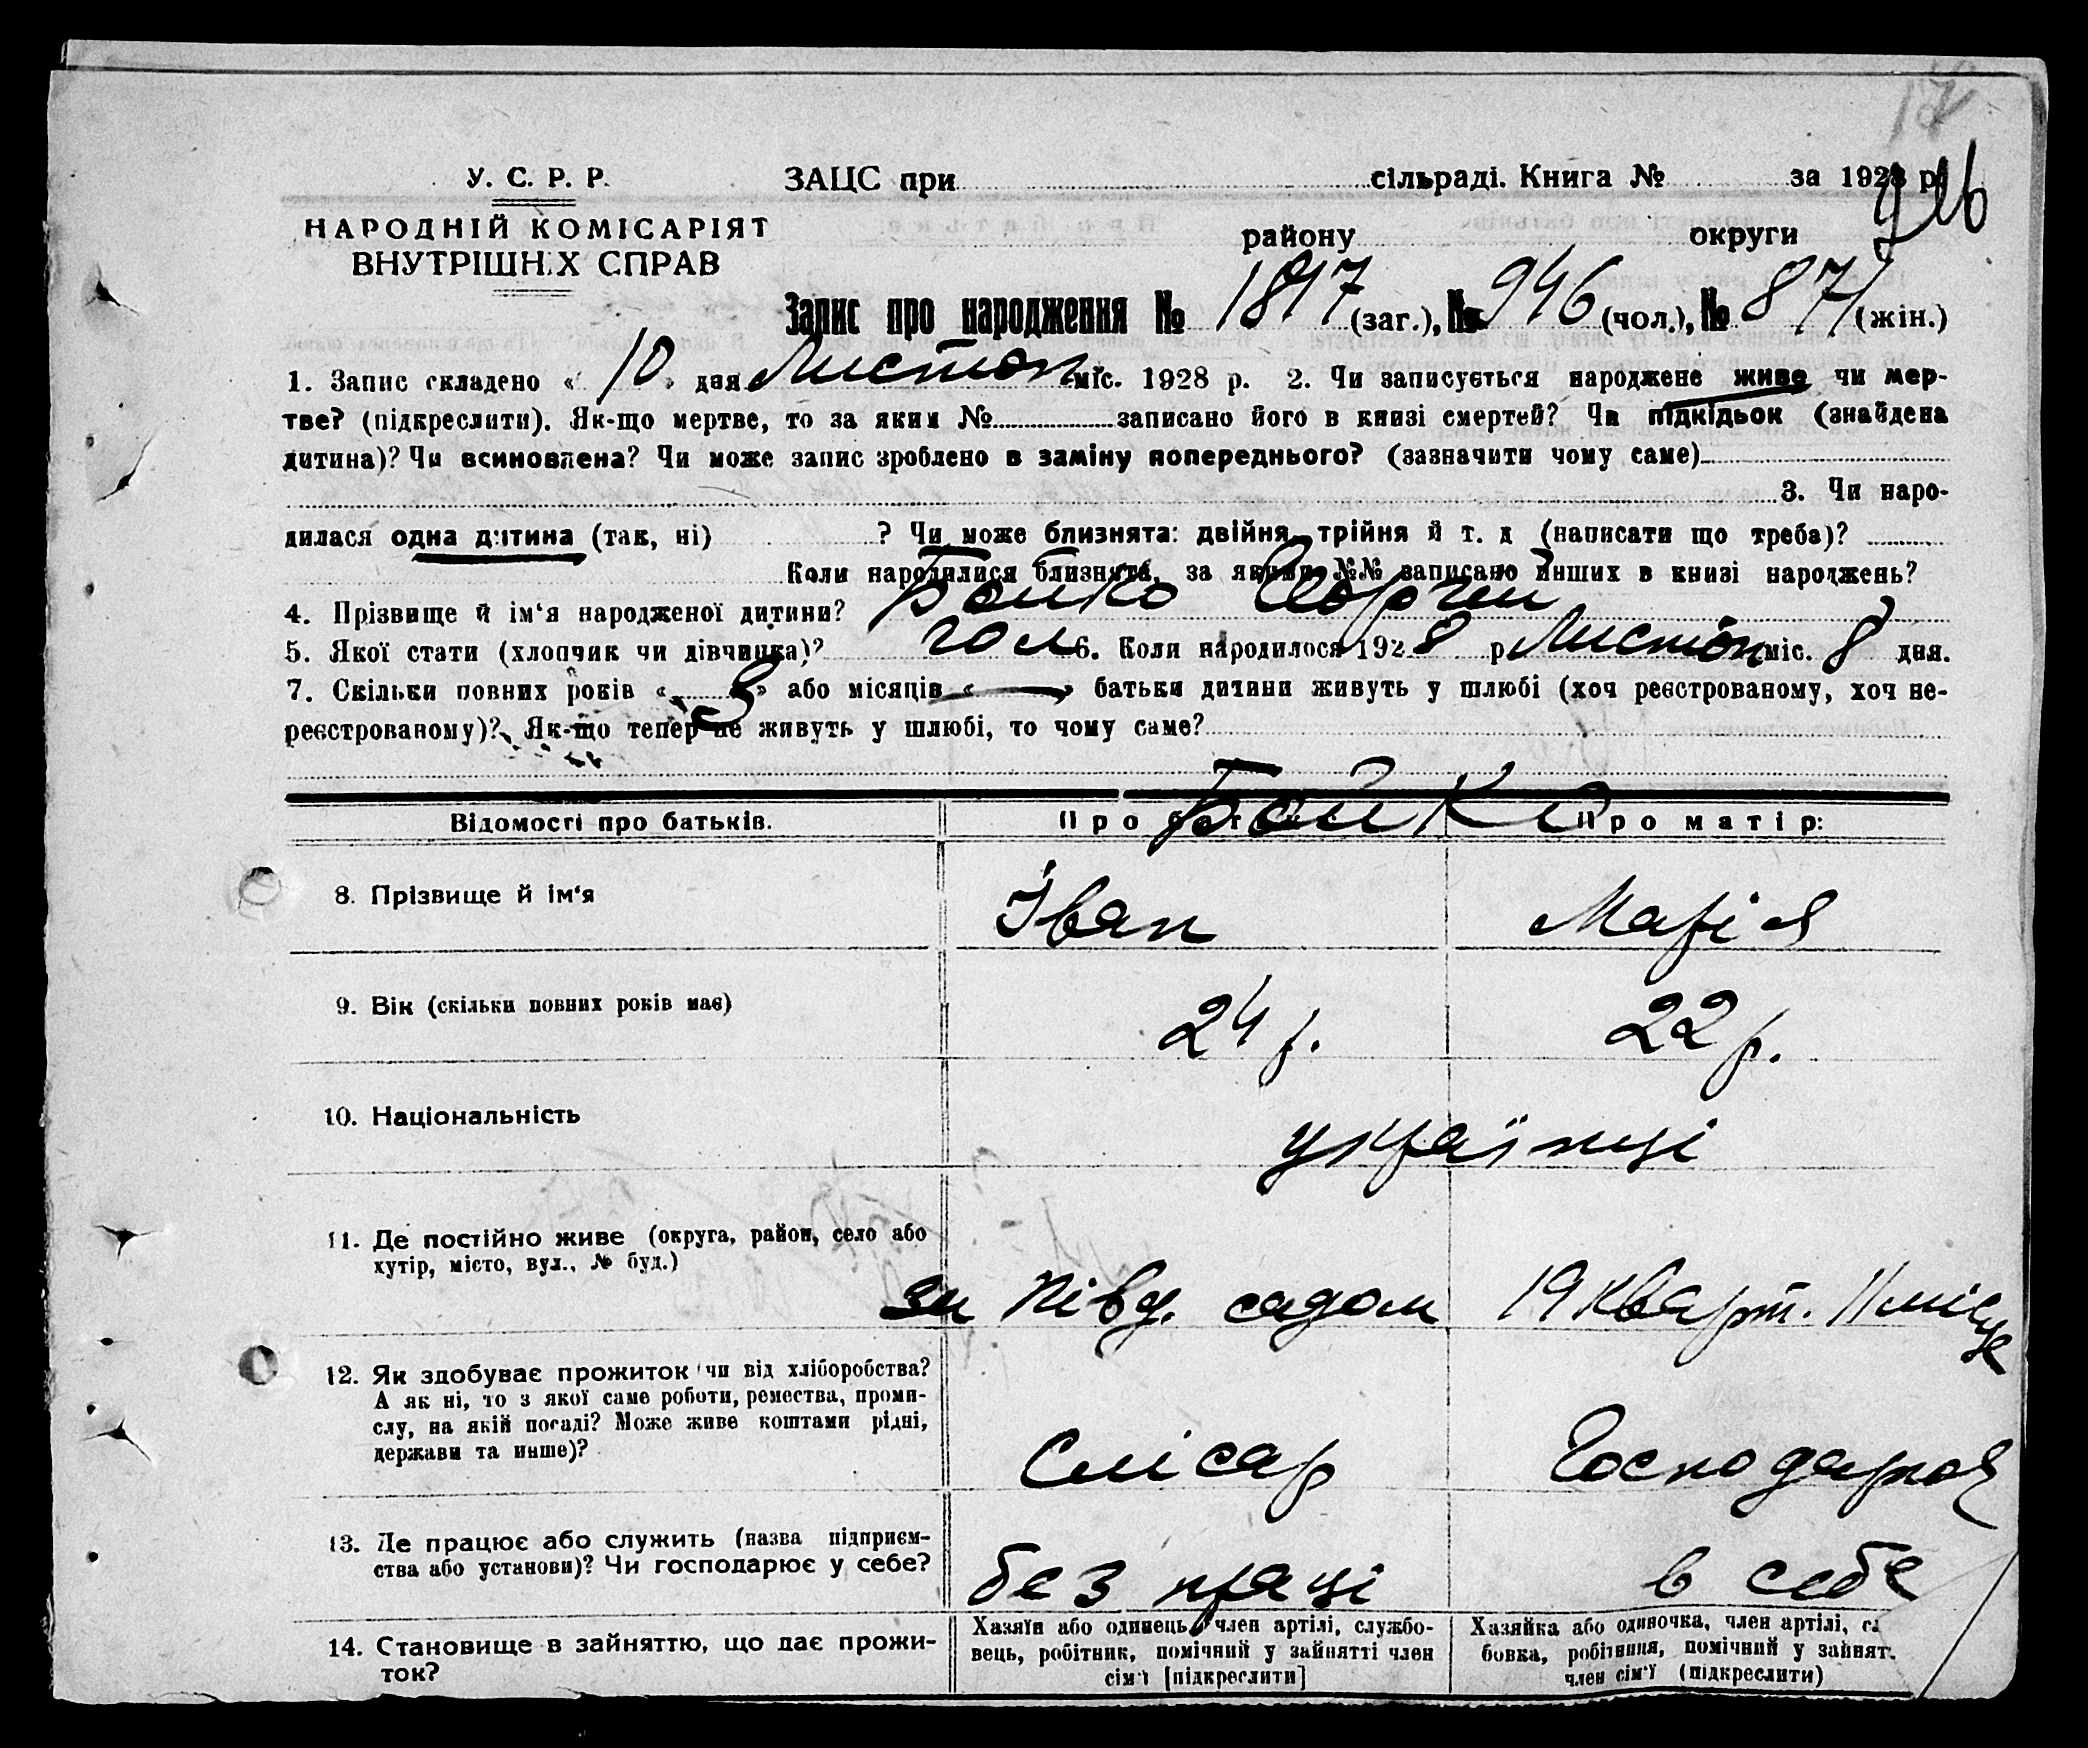 17
926
У. С. Р. Р.
ЗАЦС при сільраді. Книга № за 1928 р.
НАРОДНІЙ КОМІСАРІЯТ
ВНУТРІШНІХ СПРАВ
району округи
Запис про народження № 1817 (заг.), № 946 (чол.), № 871 (жін.)
1. Запис складено « 10 » дня Листоп міс. 1928 р. 2. Чи записується народжене живе чи мер-
тве? (підкреслити). Як-що мертве, то за яким № записано його в книзі смертей? Чи підкідьок (знайдена
дитина)? Чи всиновлена? Чи може запис зроблено в заміну попереднього? (зазначити чому саме)
3. Чи наро-
дилася одна дитина (так, ні) ? Чи може близнята: двійня, трійня й т. д (написати що треба)?
Коли народилися близнята, за якими №№ записано інших в книзі народжень?
4. Прізвище й ім‘я народженої дитини? Бойко Георгий
5. Якої статі (хлопчик чи дівчинка)? чол 6. Коли народилося 1928 р Листоп міс. 8 дня.
7. Скільки повних років « 3 » або місяців « — » батьки дитини живуть у шлюбі (хоч реєстрованому, хоч не-
реєстрованому)? Як-що тепер не живуть у шлюбі, то чому саме?
Бойки
Відомості про батьків. Про батька: Про матір:
8. Прізвище й ім‘я Іван Марія
9. Вік (скільки повних років має) 24 р. 22 р.
10. Національність українці
11. Де постійно живе (округа, район, село або
хутір, місто, вул., № буд.)
за півд. садом 19 кварт. 11 місце
12. Як здобуває прожиток чи від хліборобства?
А як ні, то з якої саме роботи, ремества, проми-
слу, на якій посаді? Може живе коштами рідні,
держави та инше)?
Слісар Господарює
13. Де працює або служить (назва підприєм-
ства або установи)? Чи господарює у себе?
без праці в себе
14. Становище в зайняттю, що дає прожи-
ток?
Хазяїн або одинець, член артілі, службо-
вець, робітник, помічний у зайнятті член
сім‘ї [підкреслити]
Хазяйка або одиночка, член артілі, сл
бовка, робітниця, помічний у зайнят.
член сім‘ї (підкреслити)